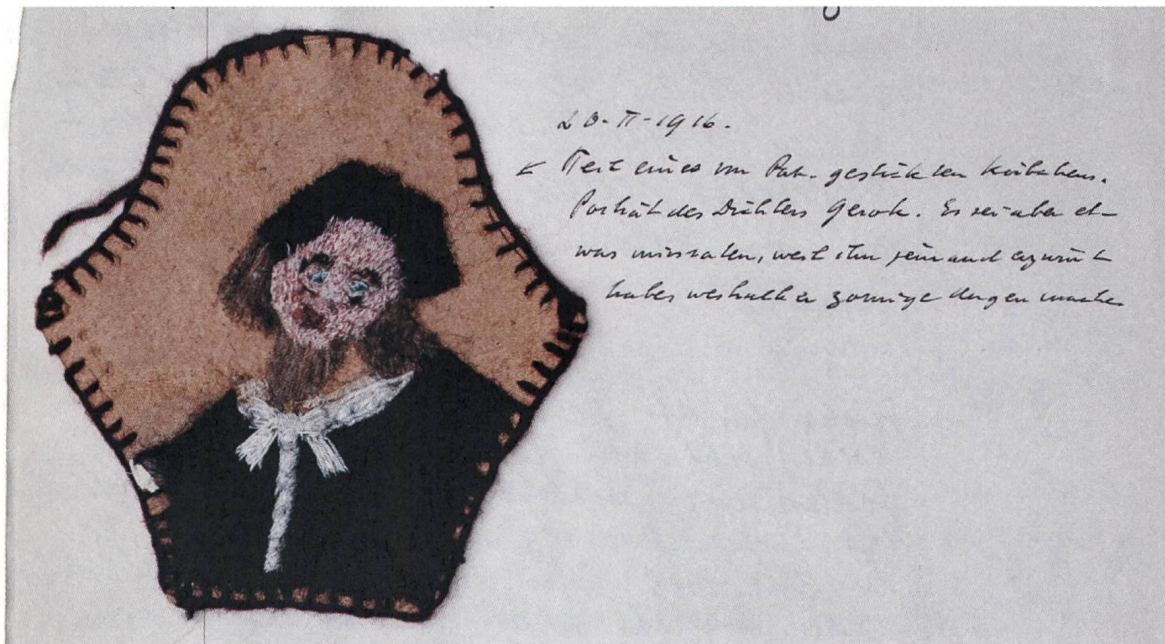 20-II-1916.
Teil eines von Pat. gestickten Körbchens.
Porträt des Dichters Gerok. Es sei aber et-
was missraten, weil ihn jemand erzürnt
habe, weshalb er zornige Augen mache